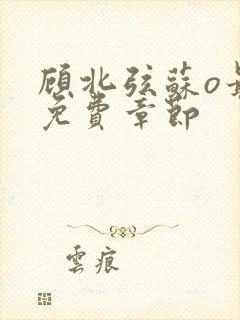 顾北弦蘇o
免費章節
雲痕